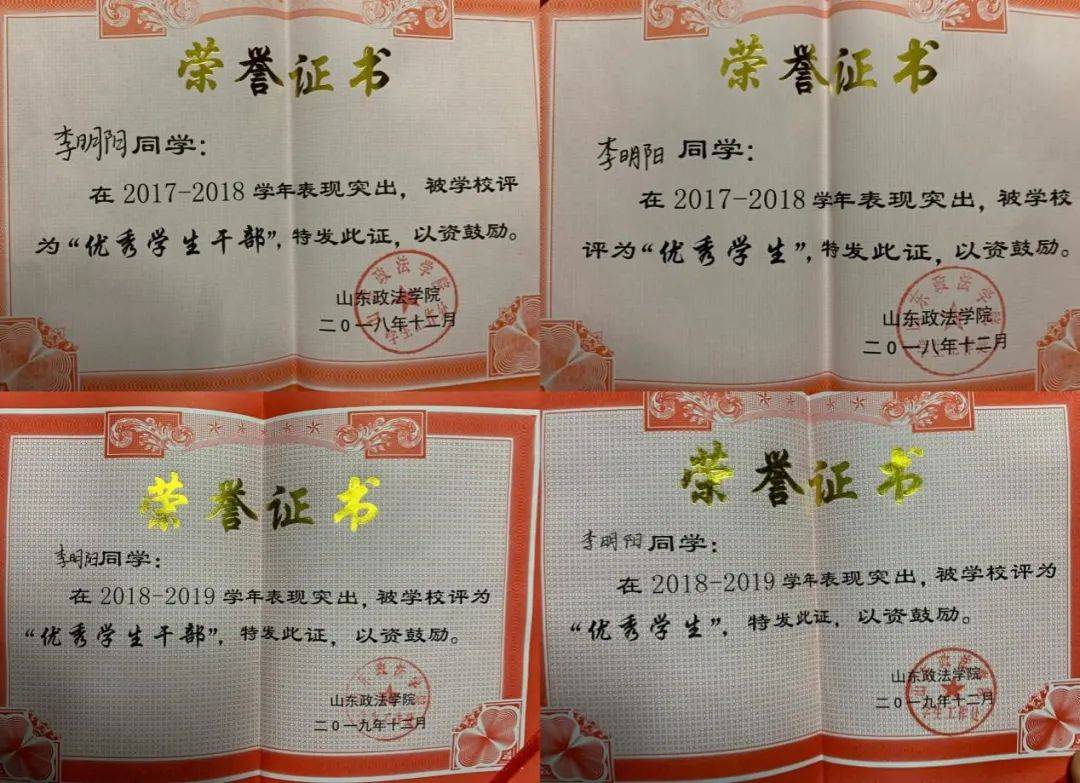 荣誉证书
李明阳同学：
在2017-2018学年表现突出，被学校评
为“优秀学生干部”，特发此证，以资鼓励。
山东政法学院
二0一八年十二月
荣誉证书
李明阳 同学：
在2017-2018学年表现突出，被学校
评为“优秀学生”，特发此证，以资鼓励。
山东政法学院
二0一八年十二月
荣誉证书
李明阳同学：
在2018-2019学年表现突出，被学校评为
“优秀学生干部”，特发此证，以资鼓励。
山东政法学院
二0一九年十二月
荣誉证书
李明阳同学：
在2018-2019学年表现突出，被学校评为
“优秀学生”，特发此证，以资鼓励。
山东政法学院
二0一九年十二月
学生工作处